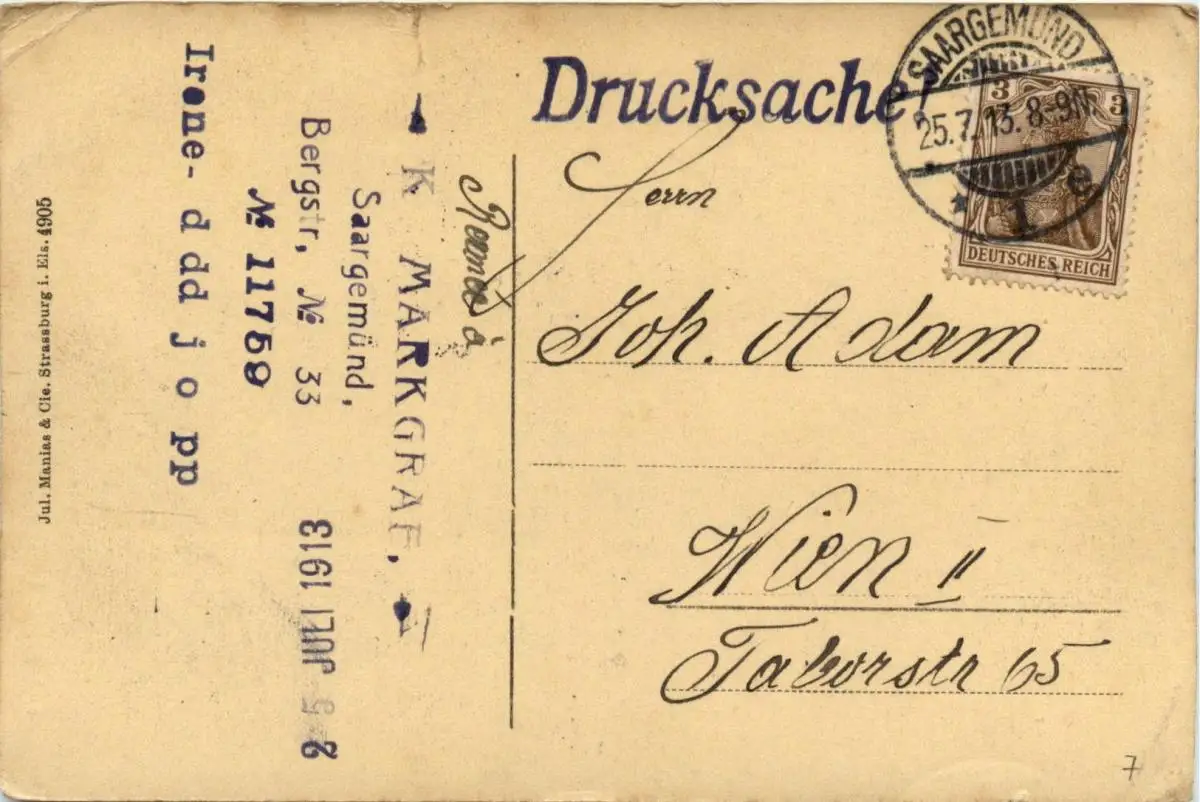 Drucksache!
SAARGEMÜND
25.7.13. 8-9N.
* 1 e
3 3
DEUTSCHES REICH
Herrn
Joh. Adam
Wien II
Taborstr 65
7
à
K MARKGRAF,
Saargemünd,
Bergstr, № 33
25 JULI 1913
№ 11759
Irene- ddd j o pp
Jul. Manias & Cie. Strassburg i. Els. 4905